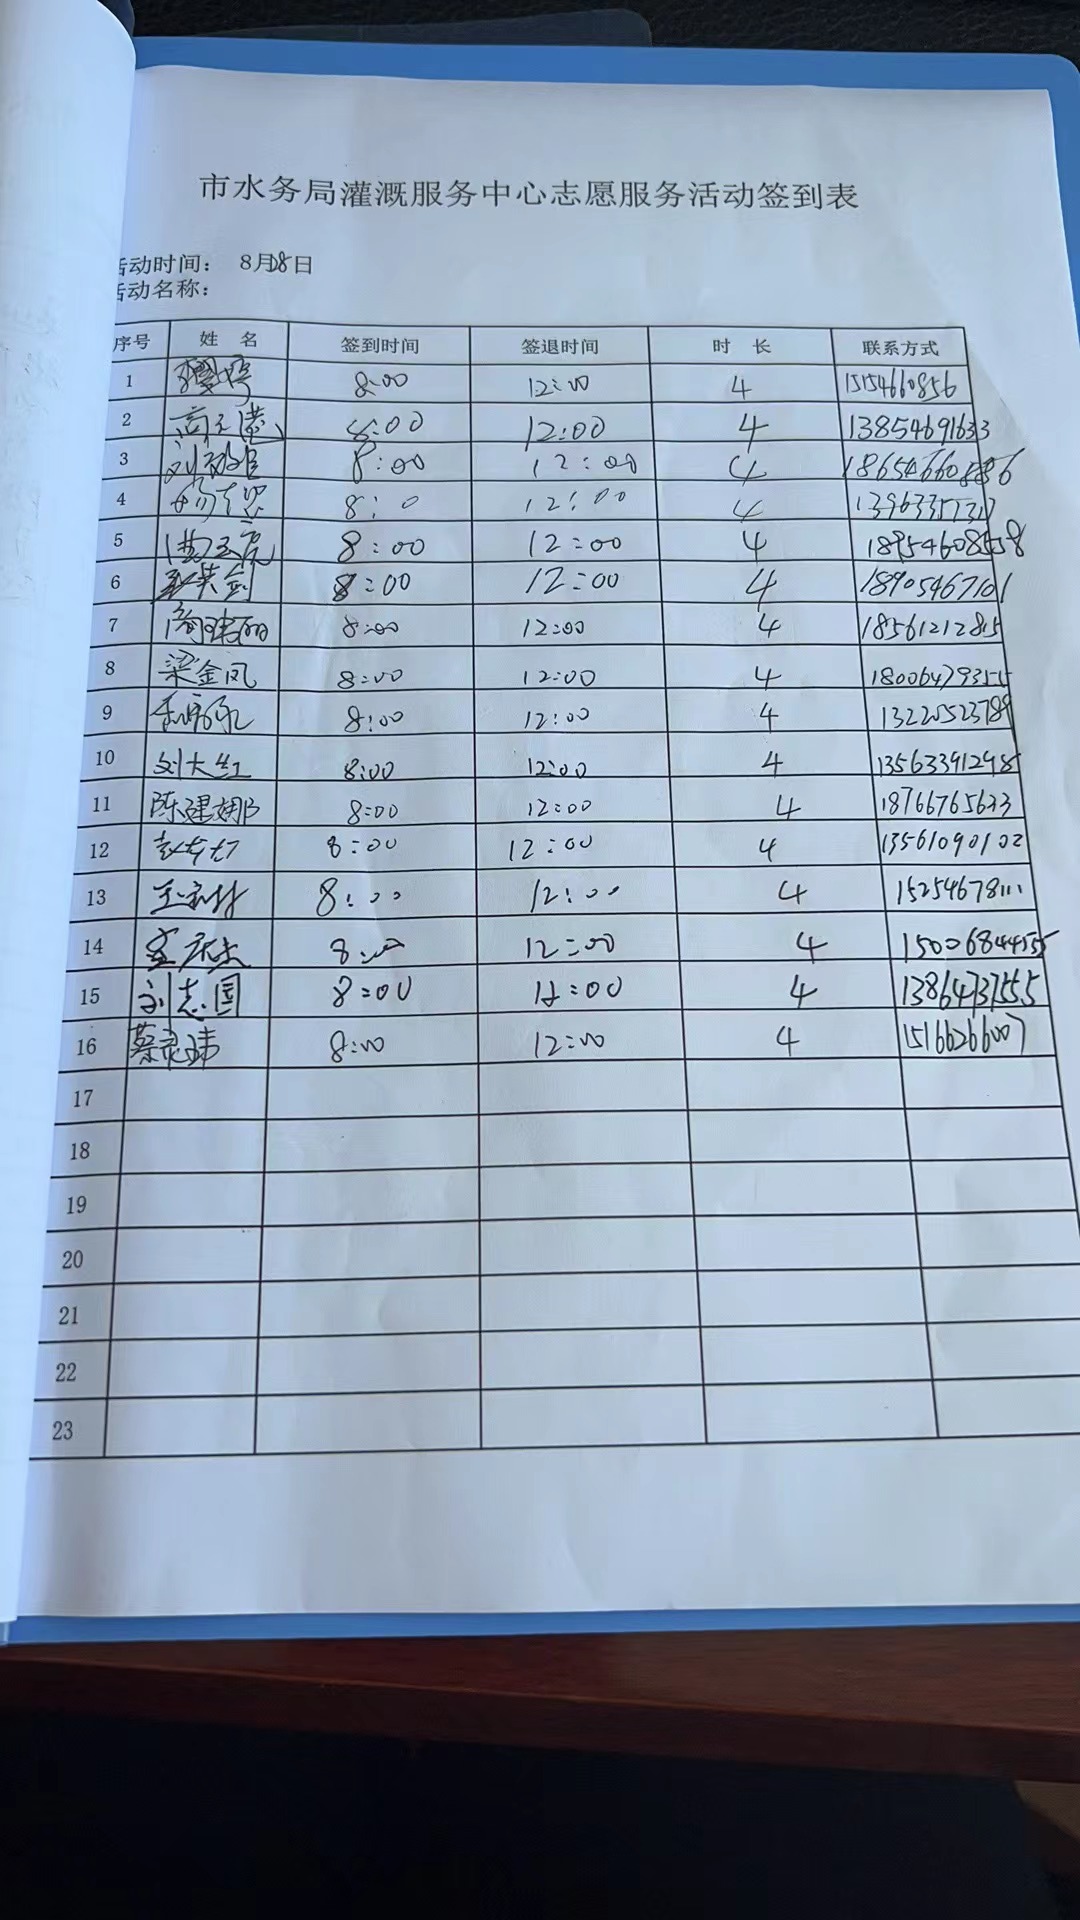 市水务局灌溉服务中心志愿服务活动签到表
活动时间： 8月28日
活动名称：
序号 姓 名 签到时间 签退时间 时 长 联系方式
1 8:00 12:00 4 15154660856
2 8:00 12:00 4 13854691633
3 8:00 12:00 4 18654660886
4 8:0 12:00 4
5 8:00 12:00 4 18954608558
6 8:00 12:00 4 18905467101
7 8:00 12:00 4 18561212815
8 梁金凤 8:00 12:00 4 18006479355
9 8:00 12:00 4 13220523789
10 刘大红 8:00 12:00 4
11 陈建娜 8:00 12:00 4 18766765633
12 8:00 12:00 4 13561090102
13 8:00 12:00 4 15254678111
14 8:00 12:00 4
15 刘志国 8:00 12:00 4 13864737555
16 蔡灵玮 8:00 12:00 4 15166266007
17
18
19
20
21
22
23